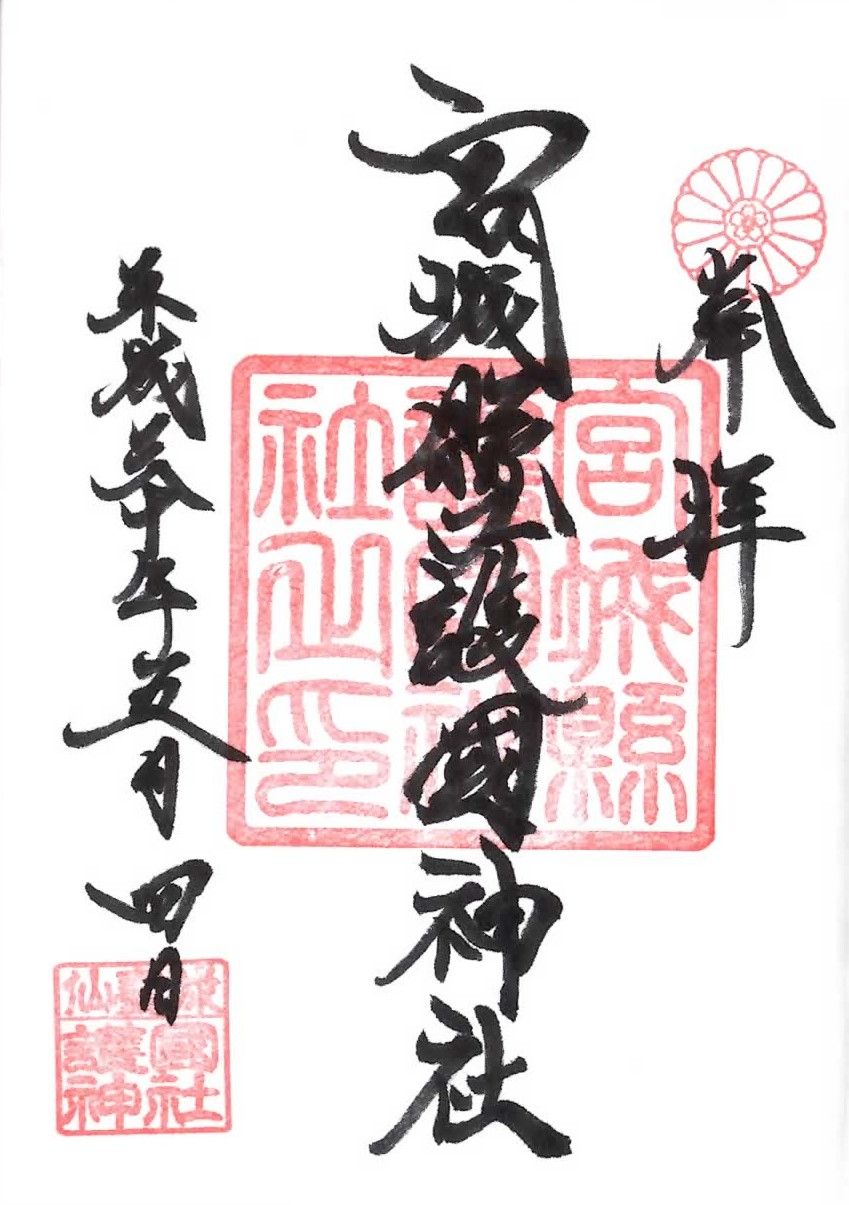 奉拝
宮城縣護國神社
平成三十年五月四日
宮城縣
護國神
社之印
護國
神社